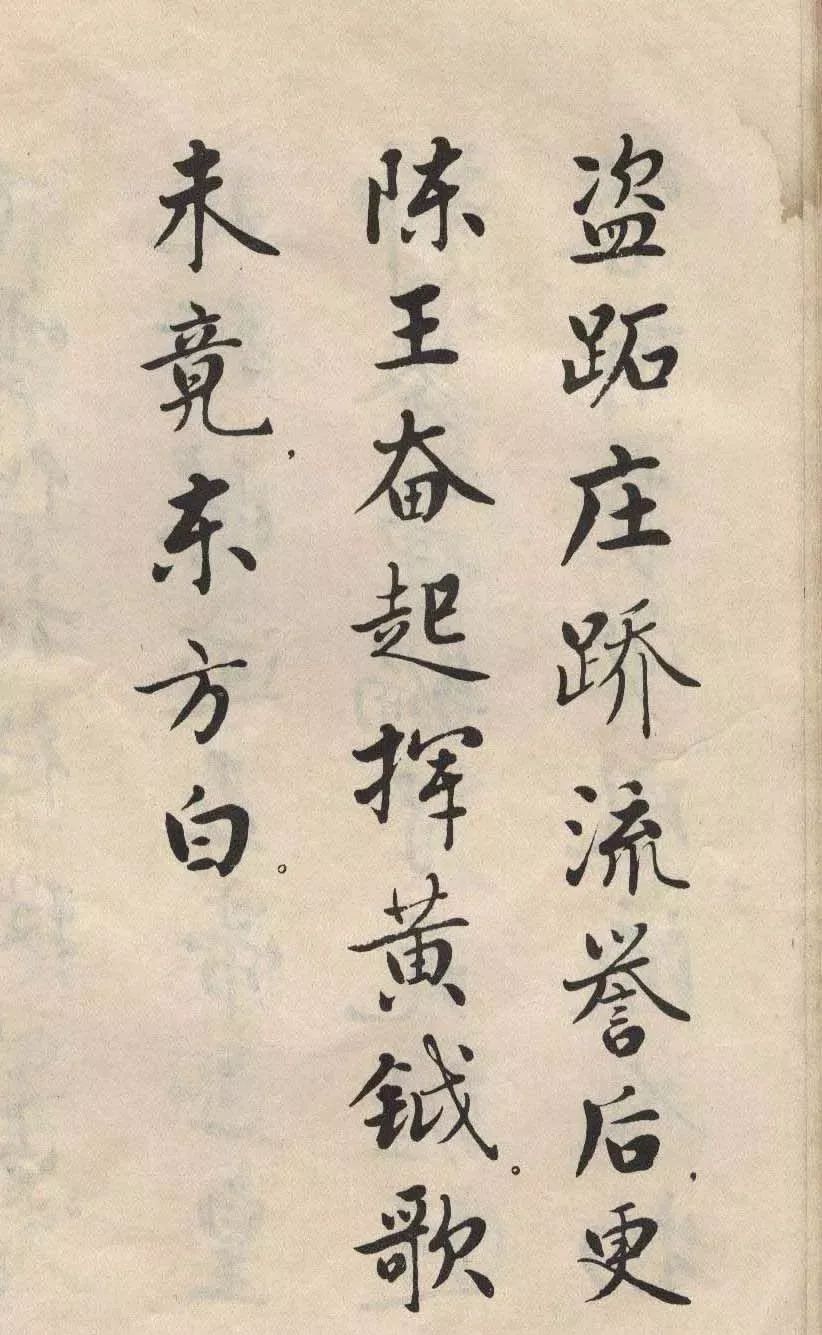 盗跖庄蹻流誉后,更
陈王奋起挥黄钺。歌
未竟,东方白。